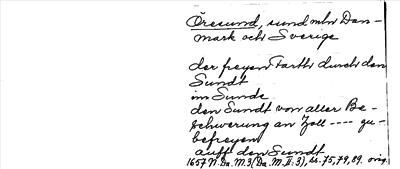 Öresund, sund mln Dan-
mark och Sverige
der freyen Farth durch den
Sundt
im Sunde
den Sundt von aller Be-
schwerung an Zoll ---- zu
befreyen
auff den Sundt
1657 N. Da. M. 3 (Da. M. II: 3), s. 75, 79, 89. orig.